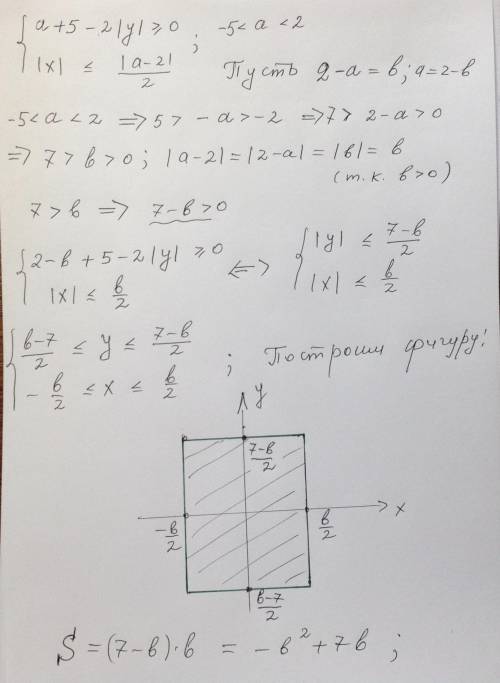 { a + 5 - 2|y| ≥ 0 ; -5 < a < 2
{ |x| ≤ |a-2|/2 Пусть 2-a = b; a = 2-b
-5 < a < 2 ⟹ 5 > -a > -2 ⟹ 7 > 2-a > 0
⟹ 7 > b > 0 ; |a-2| = |2-a| = |b| = b
(т.к. b>0)
7 > b ⟹ 7-b > 0
{ 2-b + 5 - 2|y| ≥ 0 ⟺ { |y| ≤ (7-b)/2
{ |x| ≤ b/2 { |x| ≤ b/2
{ (b-7)/2 ≤ y ≤ (7-b)/2
{ -b/2 ≤ x ≤ b/2 ; Построим фигуру!
y
(7-b)/2
-b/2 b/2 x
(b-7)/2
S = (7-b)·b = -b² + 7b ;